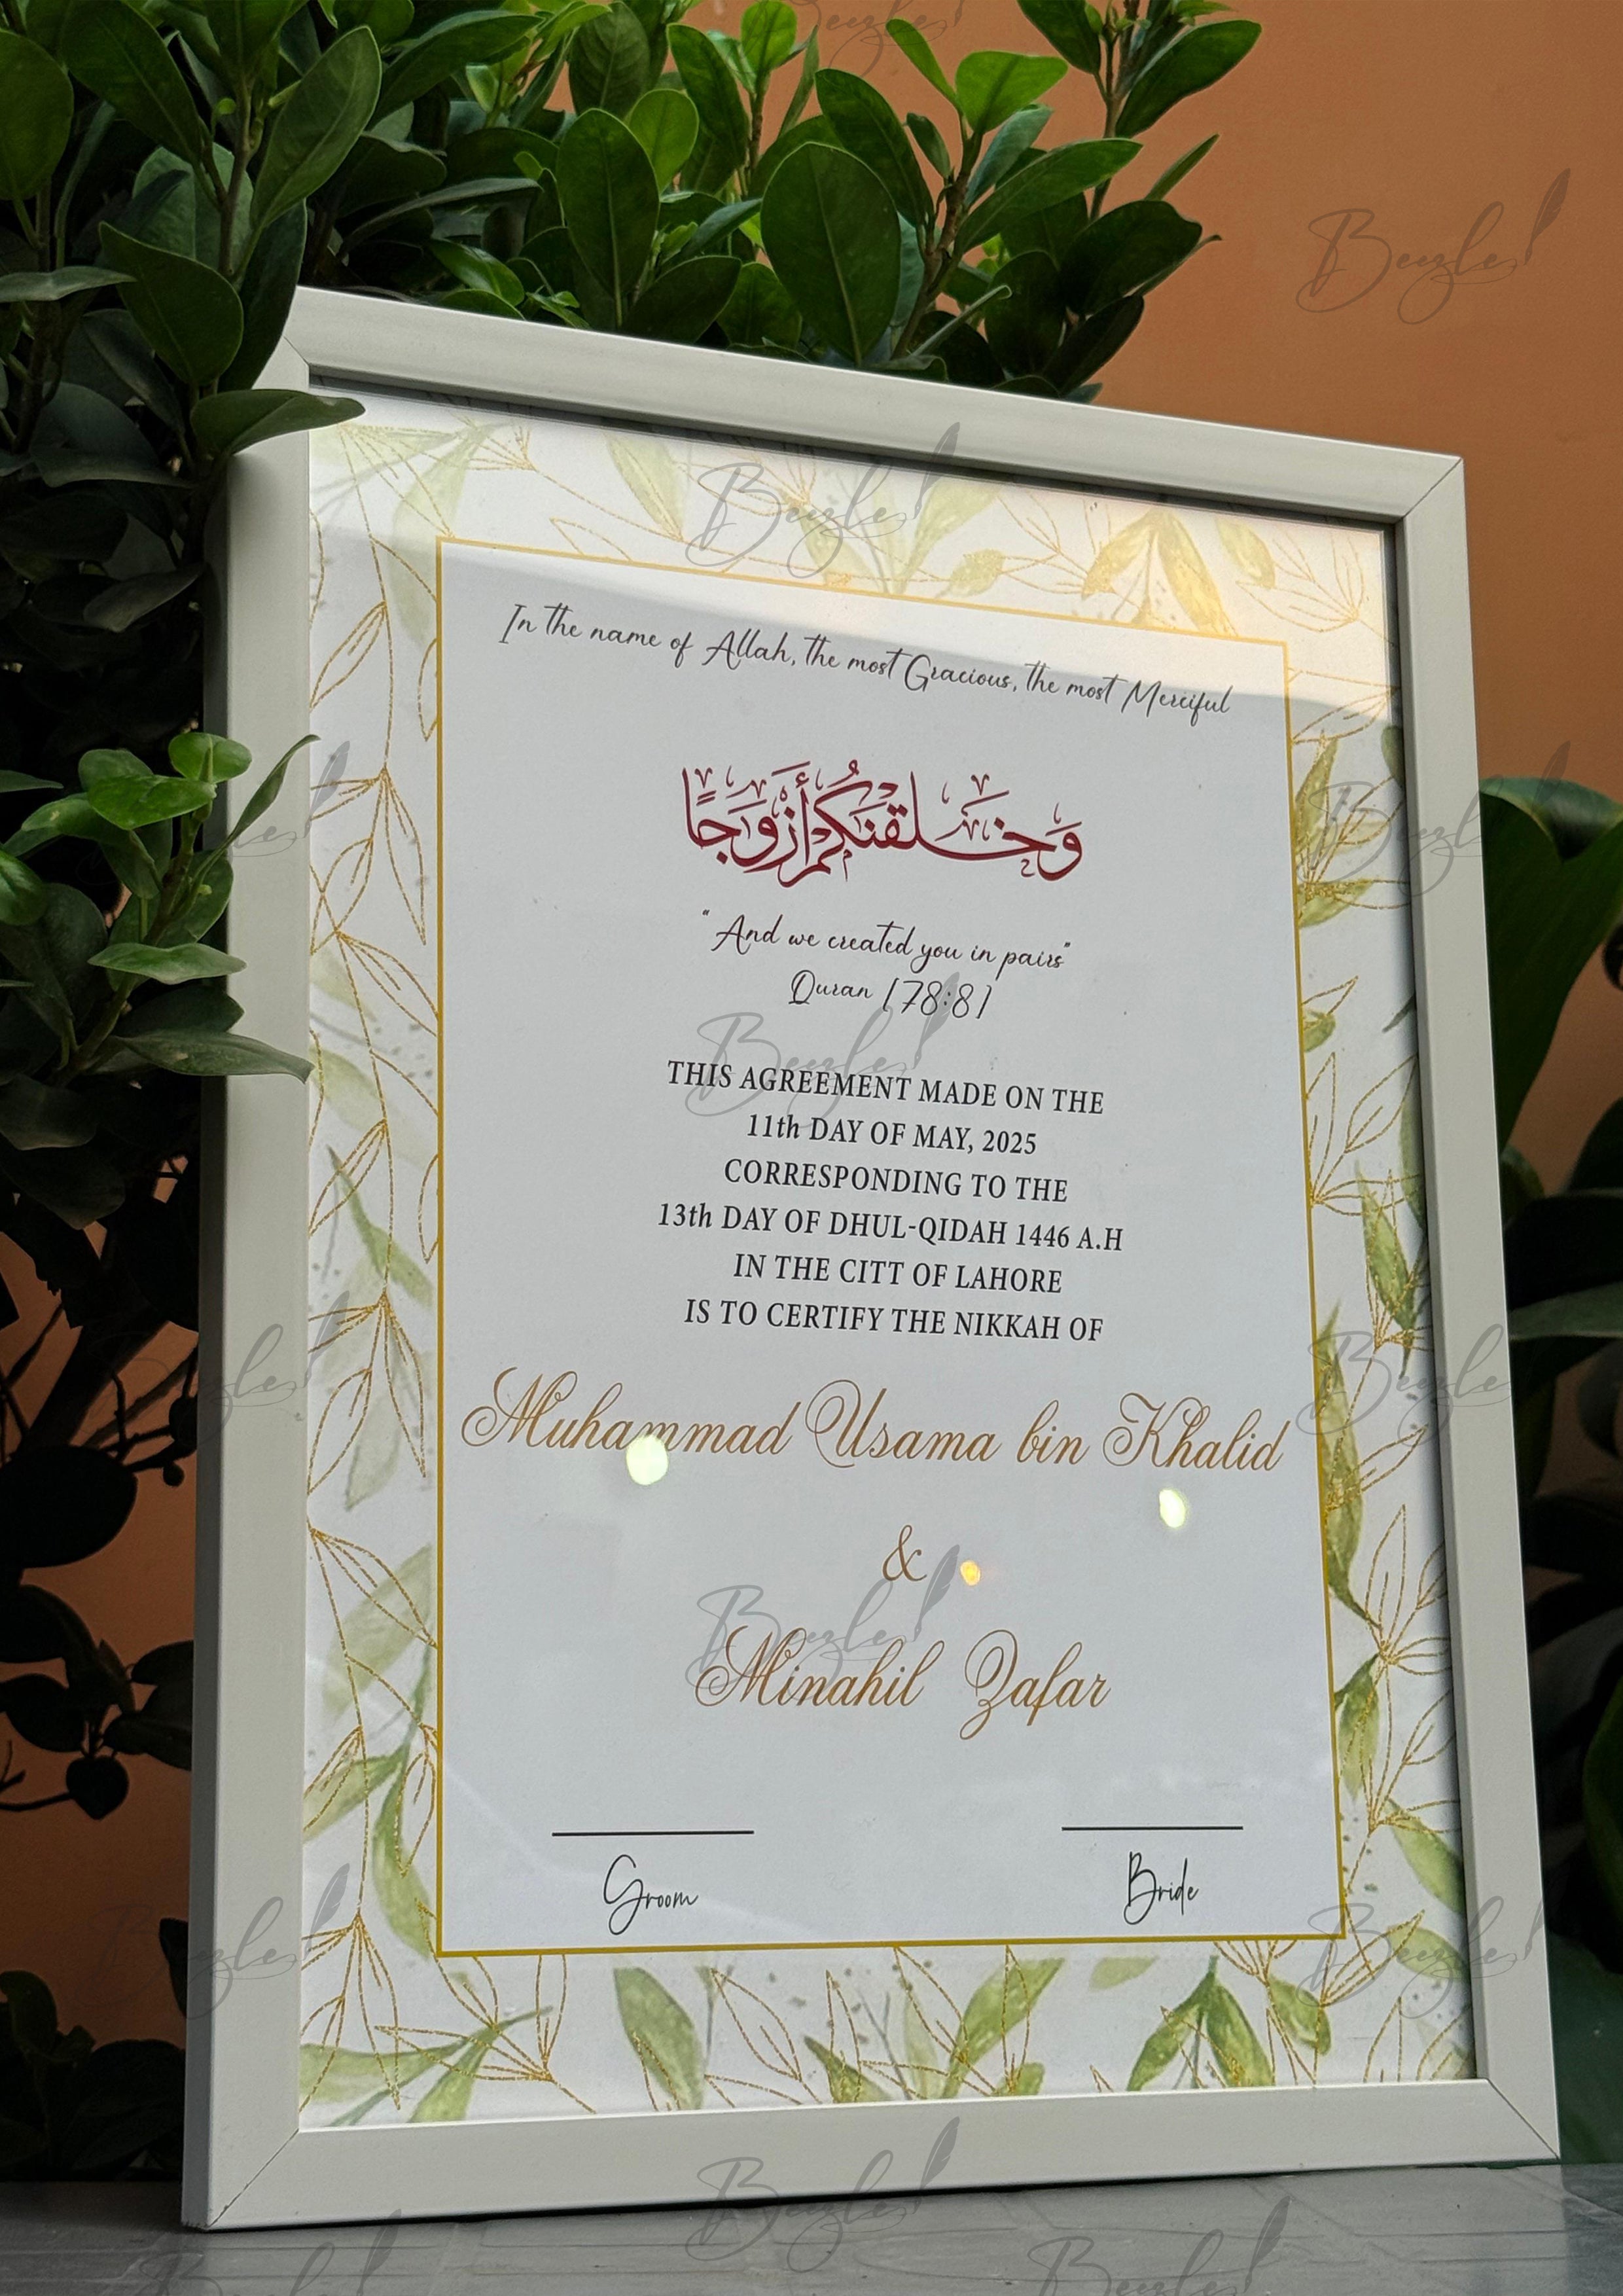 In the name of Allah, the most Gracious, the most Merciful
وَخَلَقْنَٰكُمْ أَزْوَٰجًا
"And we created you in pairs"
Quran [78:8]
THIS AGREEMENT MADE ON THE
11th DAY OF MAY, 2025
CORRESPONDING TO THE
13th DAY OF DHUL-QIDAH 1446 A.H
IN THE CITT OF LAHORE
IS TO CERTIFY THE NIKKAH OF
Muhammad Usama bin Khalid
&
Minahil Zafar
Groom Bride
Beezle